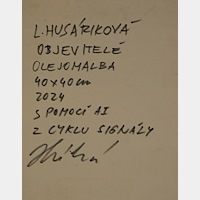 L. HUSÁRIKOVÁ
OBJEVITELÉ
OLEJOMALBA
40x40cm
2024
S POMOCÍ AI
Z CYKLU SIGNÁLY